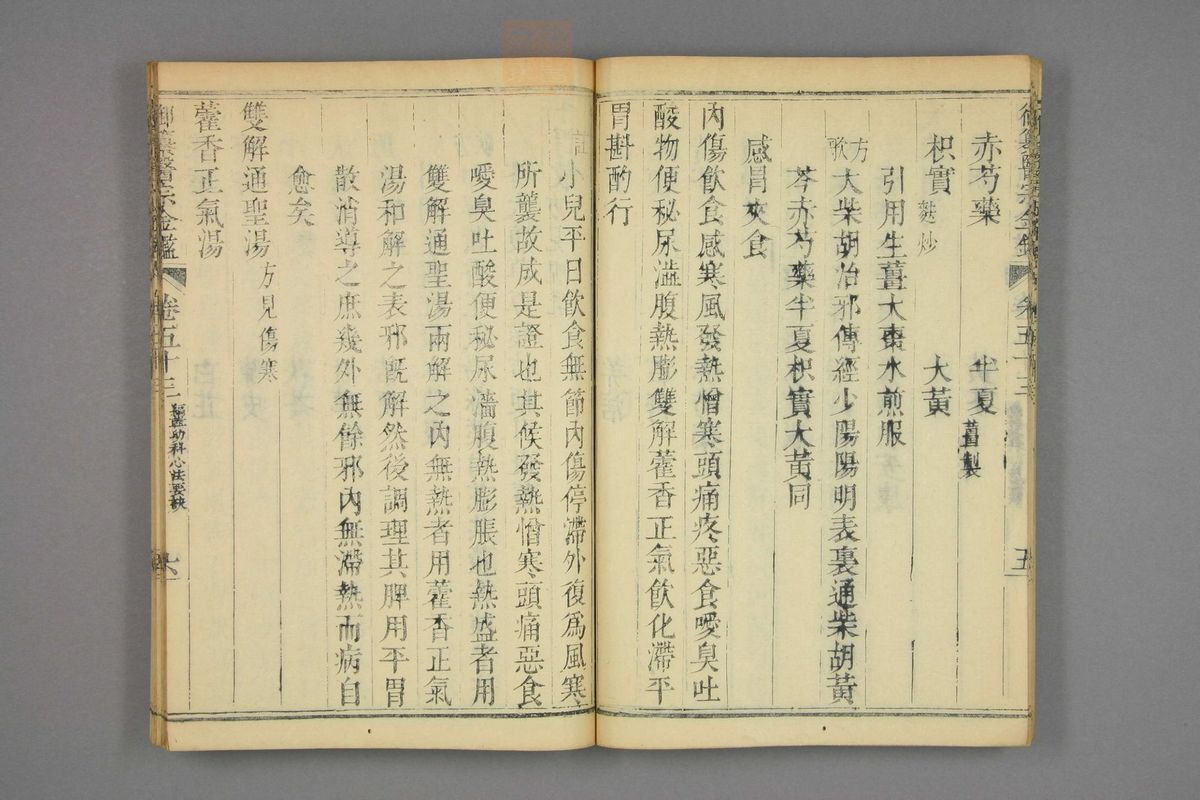 赤芍藥　半夏薑製
枳實麩炒　大黃
引用生薑大棗水煎服
方歌　大柴胡治邪傳經少陽陽明表裏通柴胡黃
芩赤芍藥半夏枳實大黃同
感冒夾食
內傷飲食感寒風發熱憎寒頭痛疼惡食噯臭吐
酸物便秘尿澁腹熱膨雙解藿香正氣飲化滯平
胃斟酌行
註小兒平日飲食無節內傷停滯外復爲風寒
所襲故成是證也其候發熱憎寒頭痛惡食
噯臭吐酸便秘尿濇腹熱膨脹也熱盛者用
雙解通聖湯兩解之內無熱者用藿香正氣
湯和解之表邪旣解然後調理其脾用平胃
散消導之庶幾外無餘邪內無滯熱而病自
愈矣
雙解通聖湯方見傷寒
藿香正氣湯
御纂醫宗金鑑　卷五十三　編輯幼科心法要訣　六